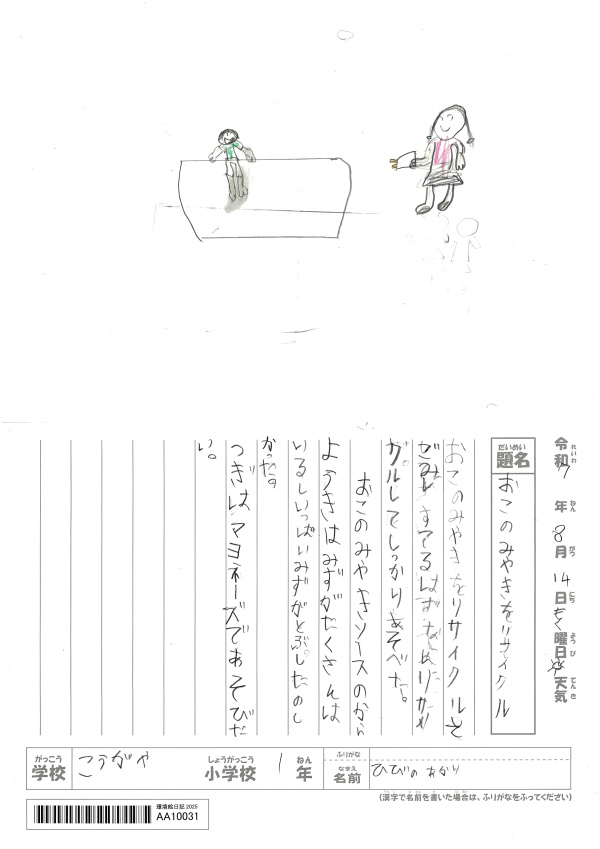 令和7年8月14日もく曜日 天気
れいわ ねん がつ にち ようび てんき
だいめい
題名 おこのみやきをリサイクル
おこのみやきをリサイクルと
ガルしてしっかりあそべた。
おこのみやきソースのから
ようきはみずがたくさんは
いるしいっぱいみずがとぶしたのし
かった。
つぎはマヨネーズであそびた
い。
がっこう
学校 こうがや
しょうがっこう
小学校
1
ねん
年
ふりがな
なまえ
名前 ひびの あかり
(漢字で名前を書いた場合は、ふりがなをふってください)
環境絵日記 2025
AA10031